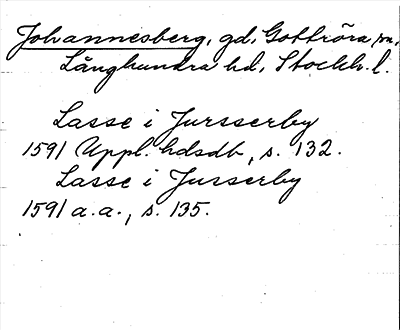 Johannesberg, gd, Gottröra sn,
Långhundra hd, Stockh. l.
Lasse i Jursserby
1591 Uppl. hdsdb, s. 132.
Lasse i Jursserby
1591 a.a., s. 135.